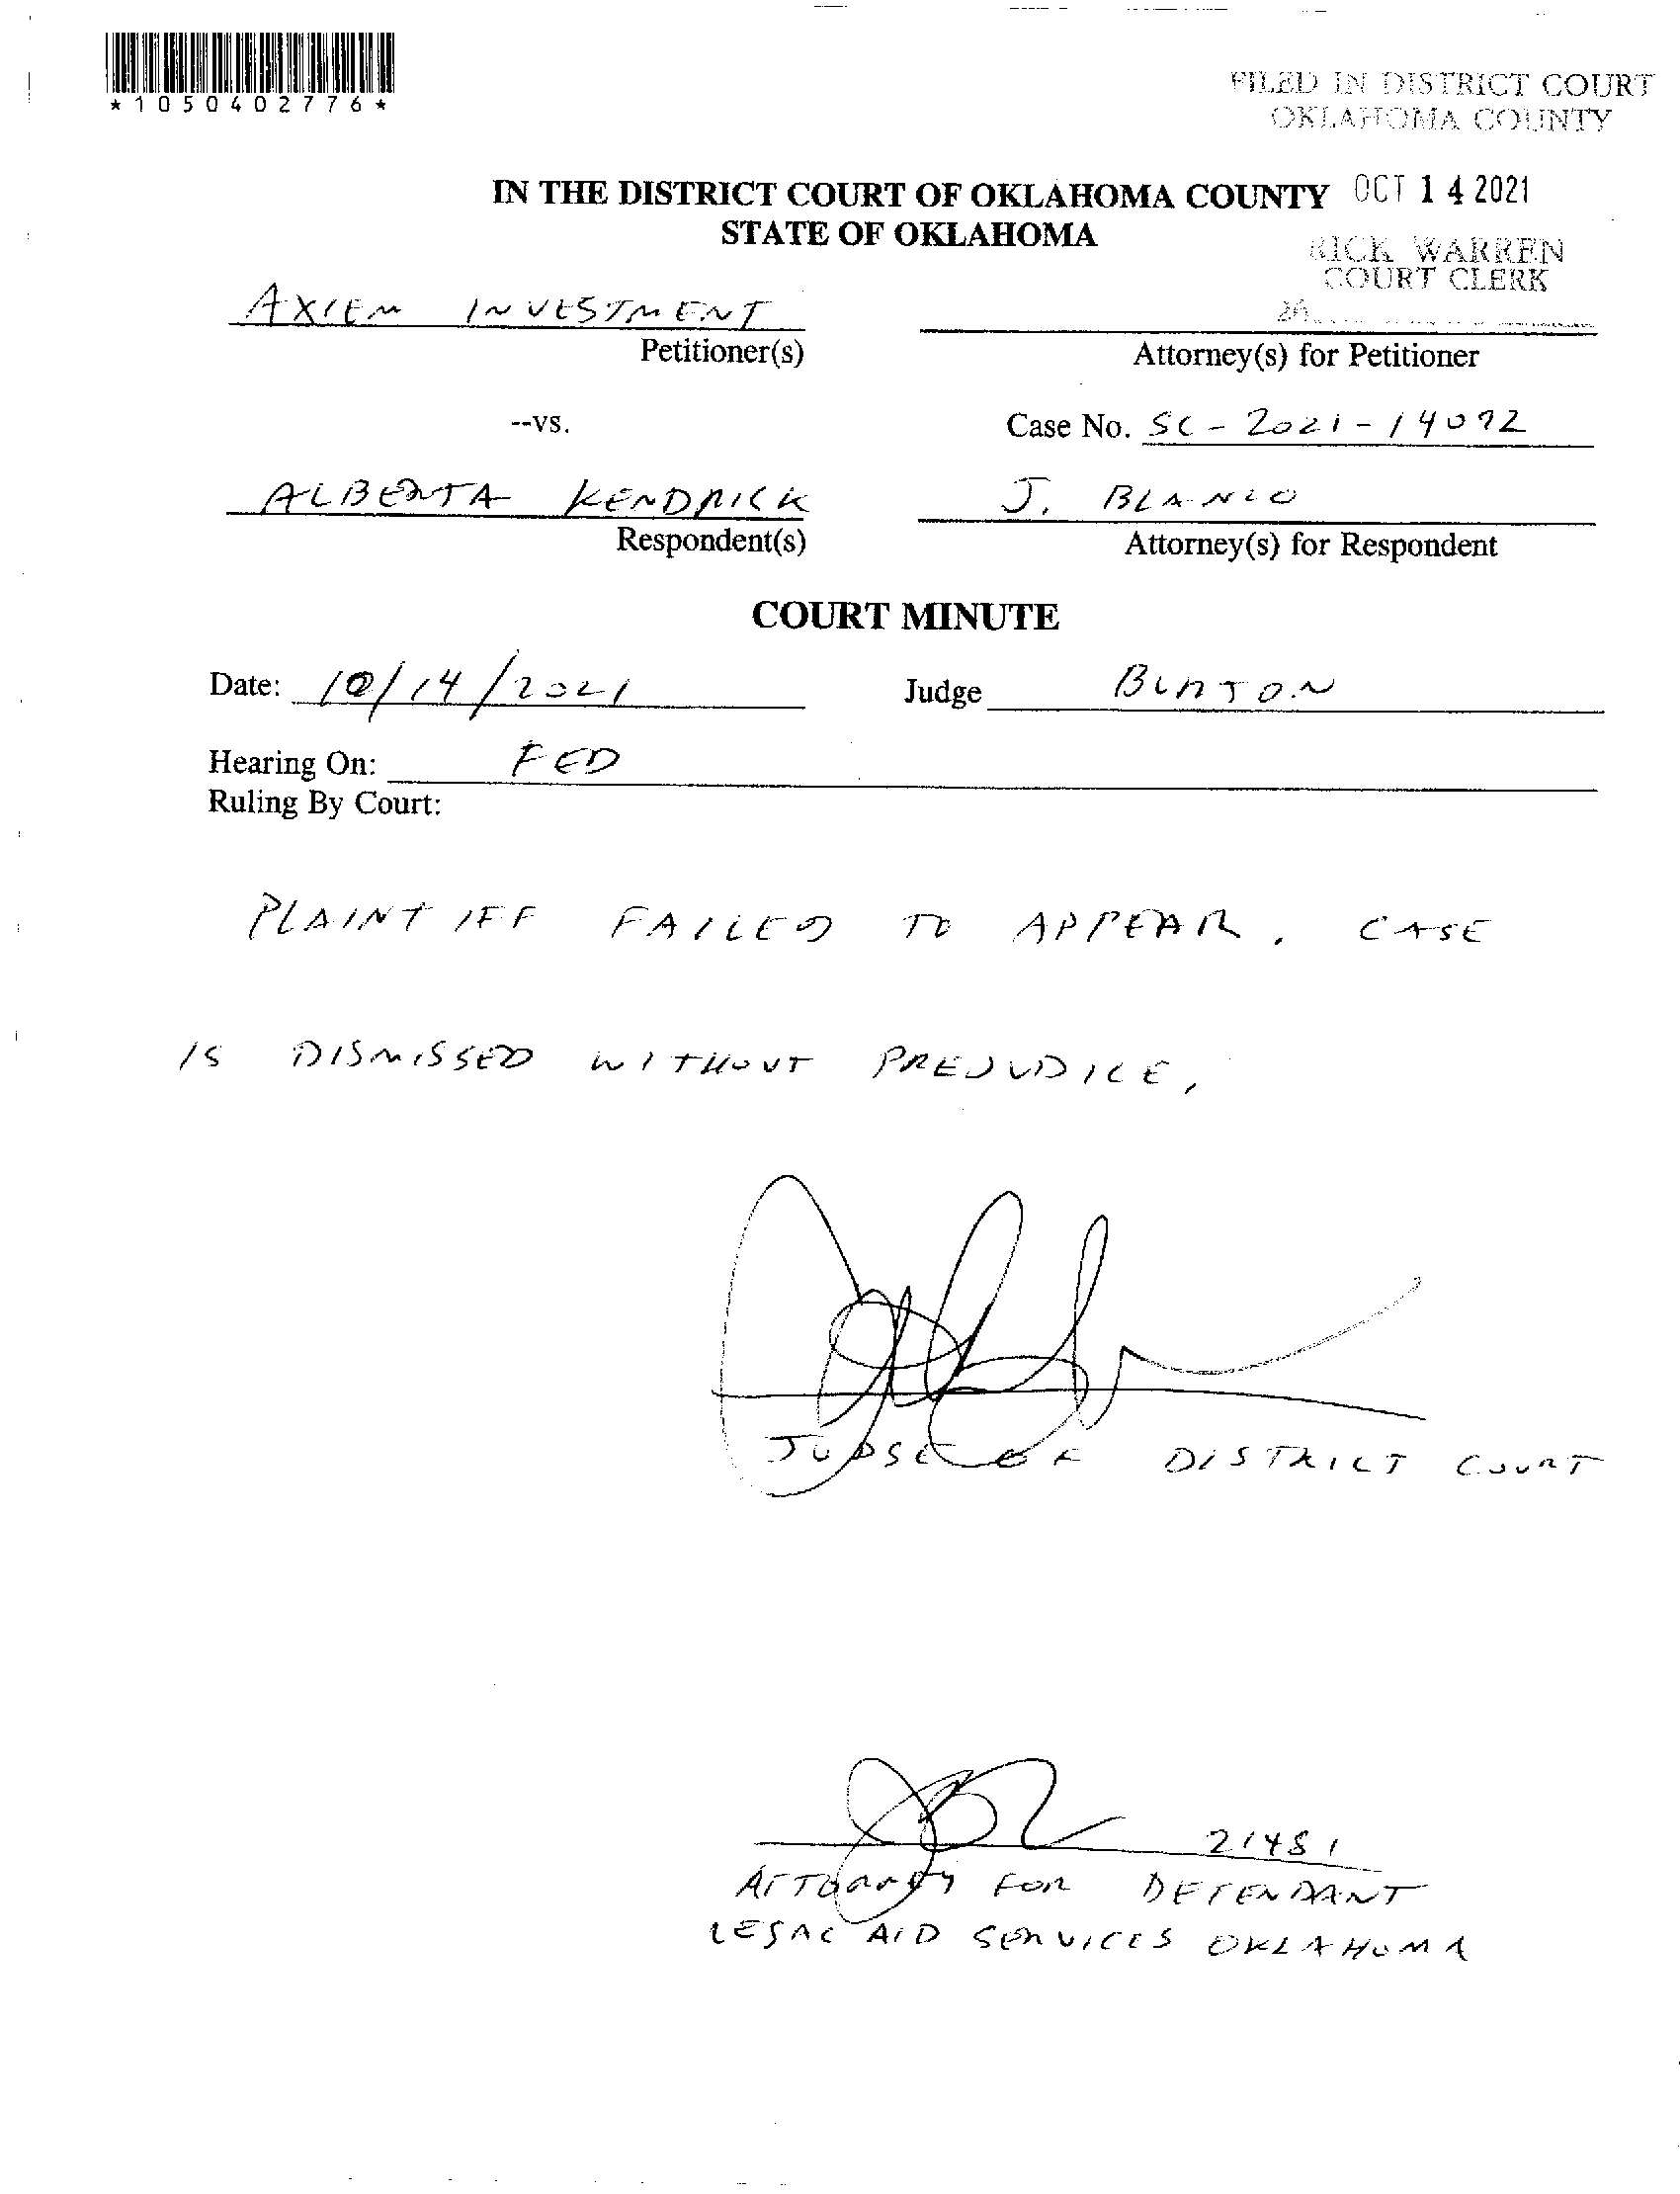 *1050402776*
FILED IN DISTRICT COURT
OKLAHOMA COUNTY
IN THE DISTRICT COURT OF OKLAHOMA COUNTY OCT 14 2021
STATE OF OKLAHOMA
RICK WARREN
COURT CLERK
AXIEM INVESTMENT
Petitioner(s)
Attorney(s) for Petitioner
--vs.
Case No. SC-2021-14092
ALBERTA KENDRICK
J. BLANCO
Respondent(s)
Attorney(s) for Respondent
COURT MINUTE
Date: 10/14/2021
Judge BURTON
Hearing On: FED
Ruling By Court:
PLAINTIFF FAILED TO APPEAR. CASE
IS DISMISSED WITHOUT PREJUDICE.
JUDGE OF DISTRICT COURT
21481
ATTORNEY FOR DEFENDANT
LEGAL AID SERVICES OKLAHOMA